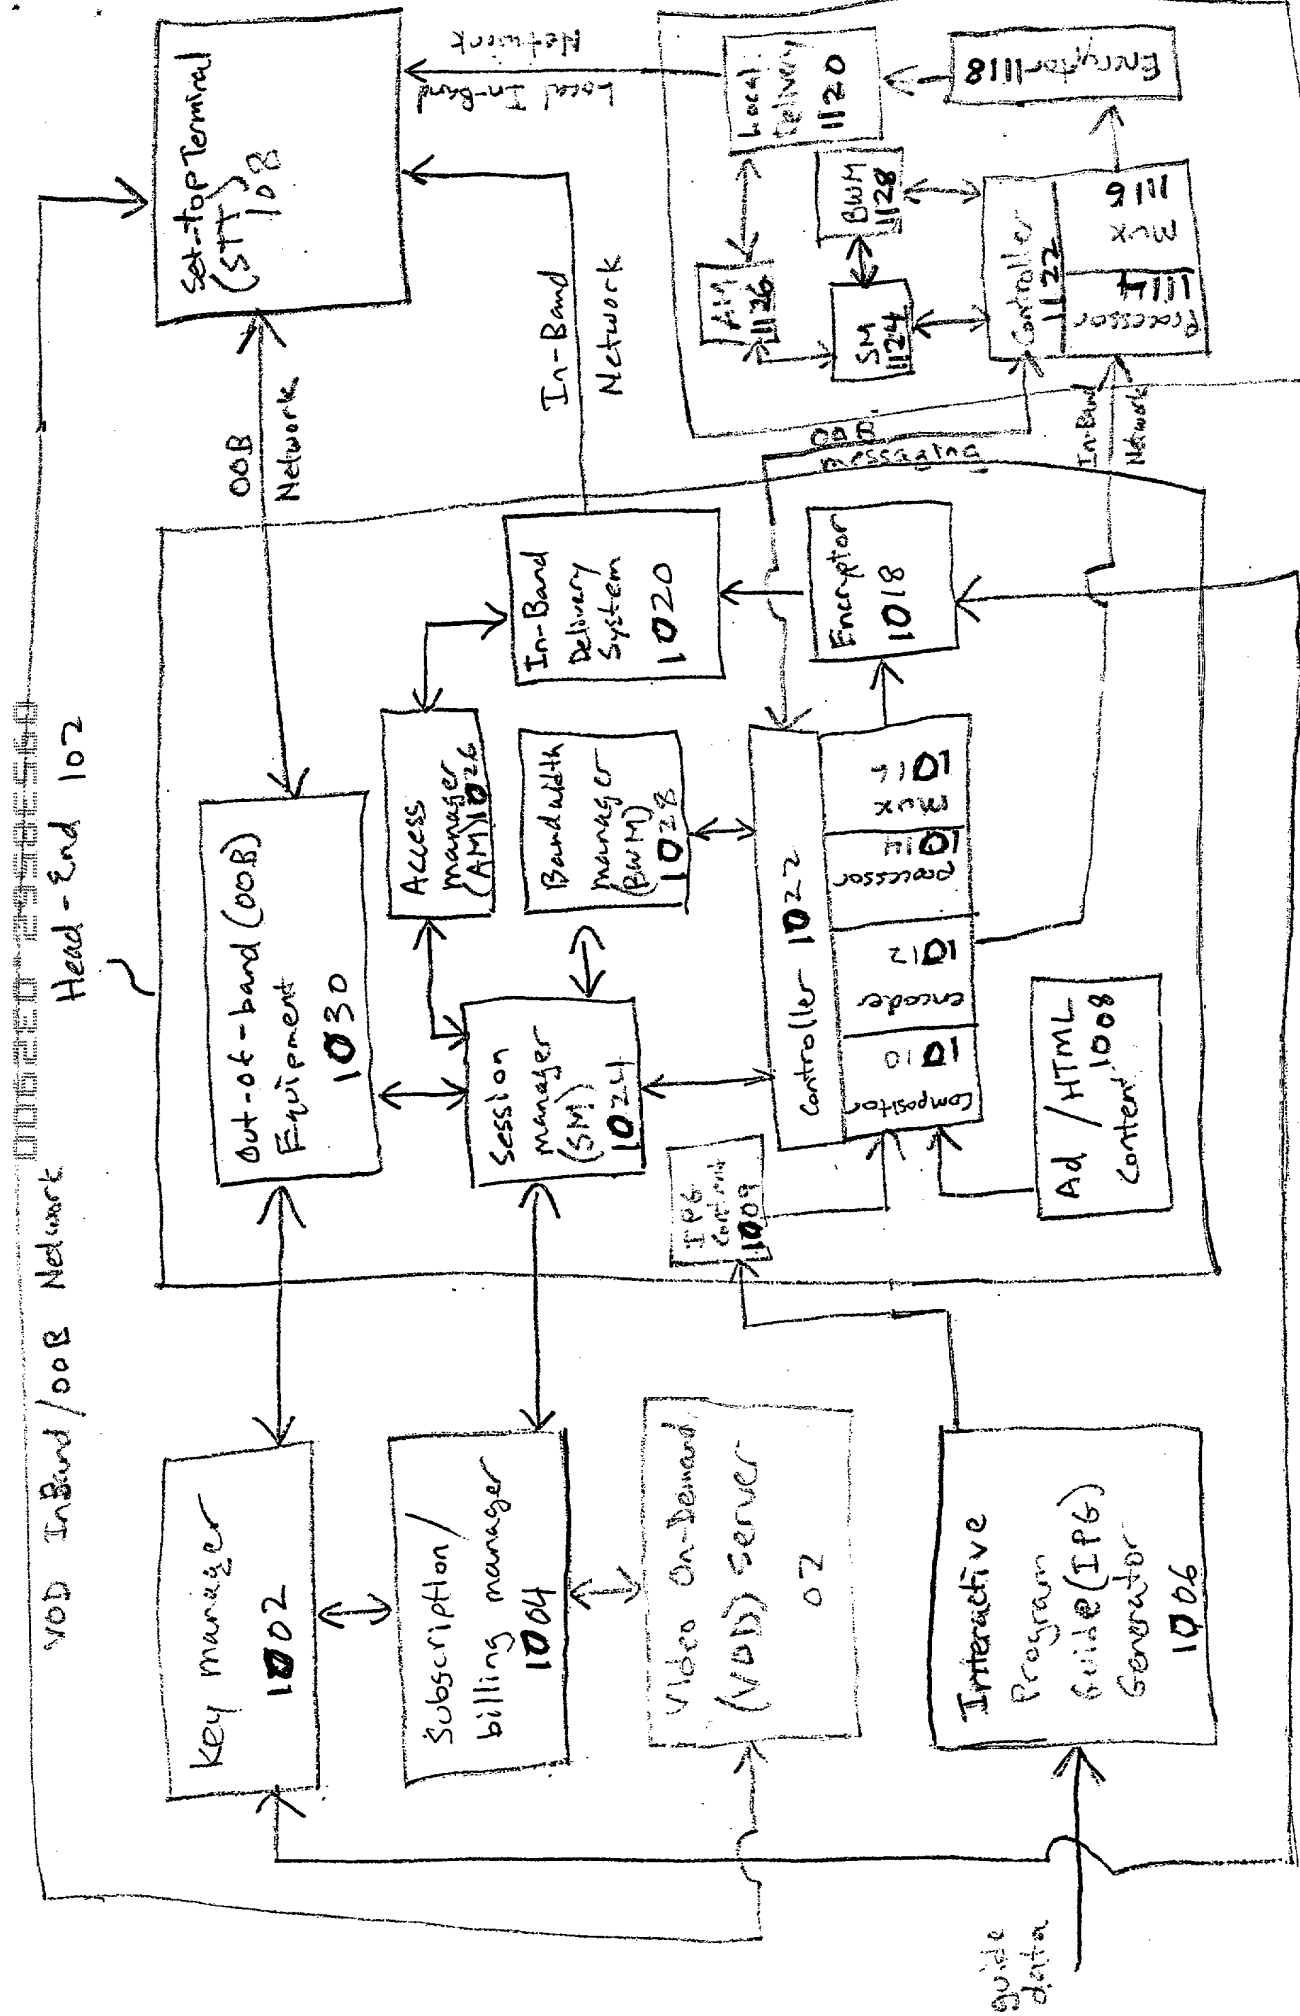 VOD InBand/OOB Network
Head-End 102
Key manager
1002
Subscription/
billing manager
1004
Video On-Demand
(VOD) server
02
Interactive
Program
Guide (IPG)
Generator
1006
guide
data
Out-of-band (OOB)
Equipment
1030
Session
manager
(SM)
1024
Access
manager
(AM) 1026
Bandwidth
manager
(BWM)
1028
In-Band
Delivery
System
1020
Encryptor
1018
IPG
Content
1009
Controller 1022
Compositor
1010
encoder
1012
processor
1014
mux
1016
Ad / HTML
Content 1008
OOB
Network
In-Band
Network
Set-top Terminal
(STT)
108
Local In-Band
Network
OOB
messaging
In-Band
Network
Local
Delivery
1120
Encryptor 1118
AM
1126
BWM
1128
SM
1124
Controller
1122
Processor
1114
mux
1116